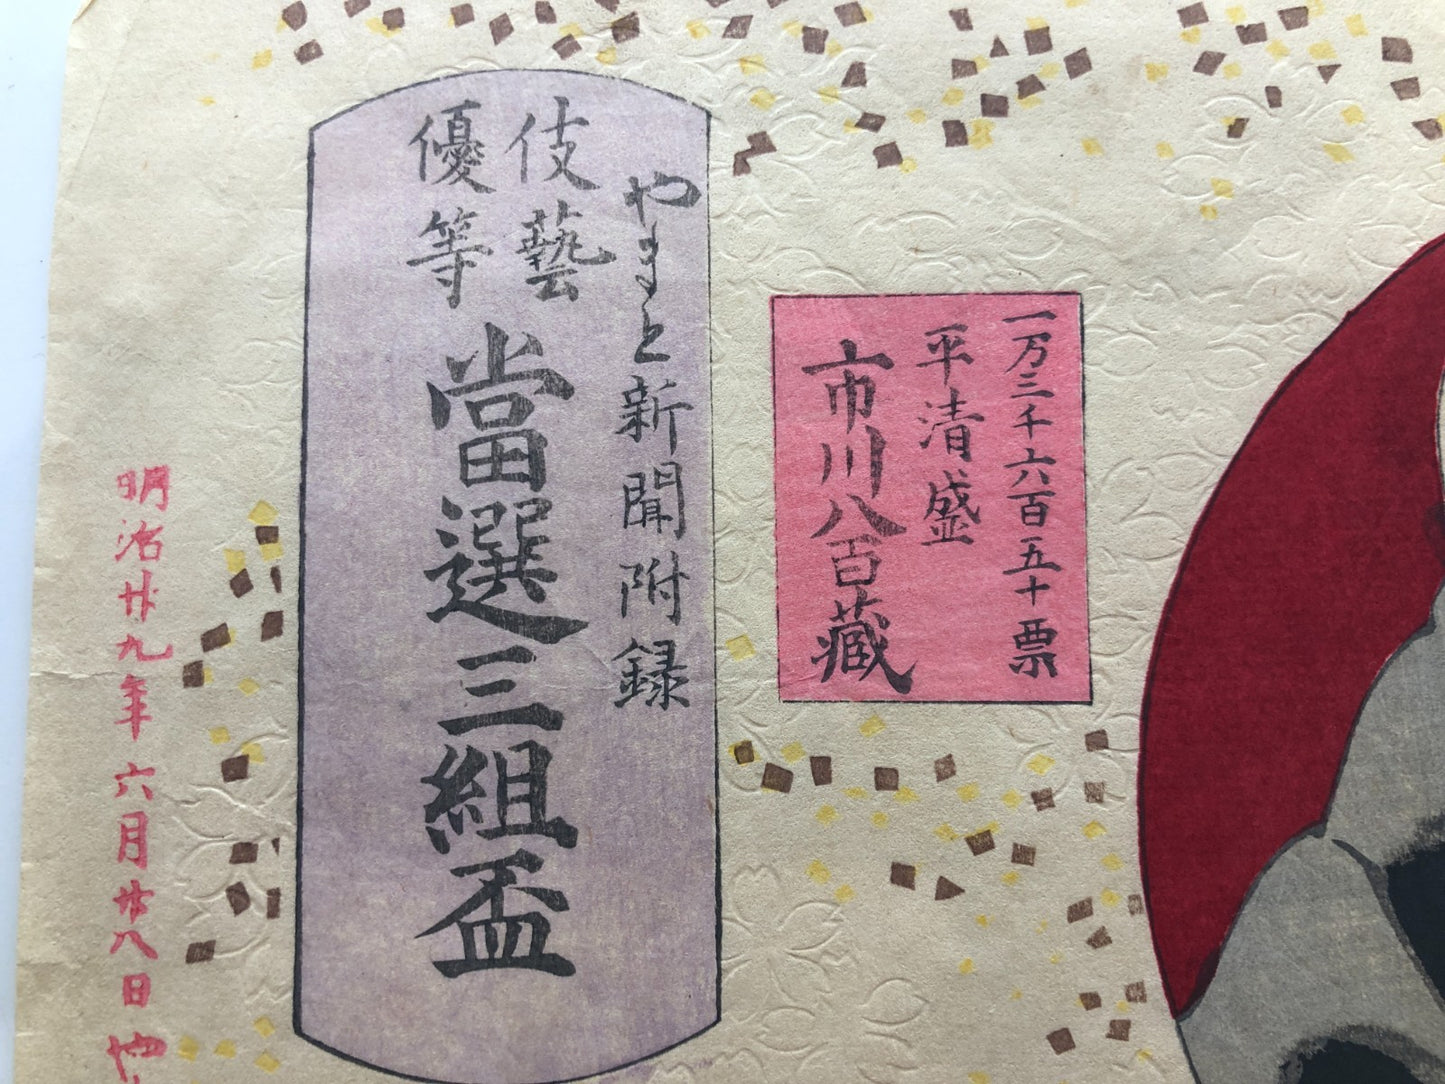 一万三千六百五十票
平清盛
市川八百藏
やまと新聞附録
伎藝
優等
當選三組盃
明治廿九年六月廿八日や